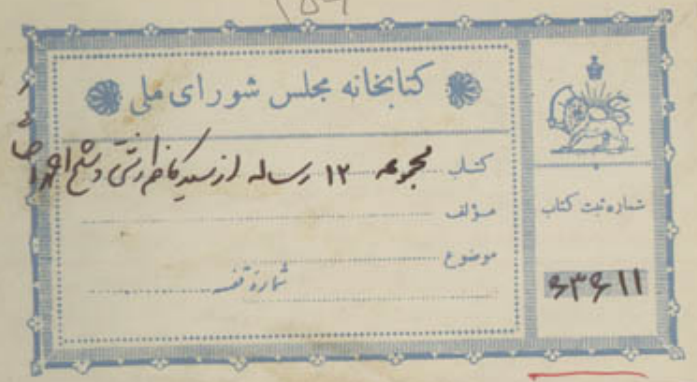 کتابخانه مجلس شورای ملی
کتاب مجموعه ۱۲ رساله از سید کاظم رشتی و شیخ احمد
مؤلف
موضوع
شماره قفسه
شماره ثبت کتاب
۶۳۶۱۱